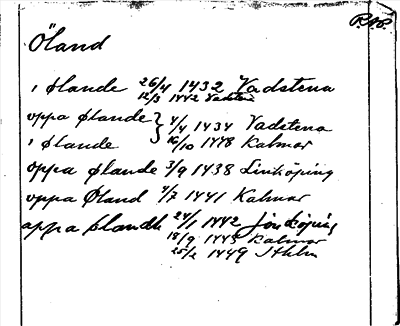 R.A.P.
Öland
i ølande 26/4 1432 Vadstena
12/3 1442 Vadstena
uppa ølande } 4/4 1434 Vadstena
i ølande 16/10 1448 Kalmar
oppa ølande 3/9 1438 Linköping
uppa Øland 4/7 1441 Kalmar
appa ølandh 24/1 1442 Jönköping
18/9 1445 Kalmar
25/2 1449 Sthlm